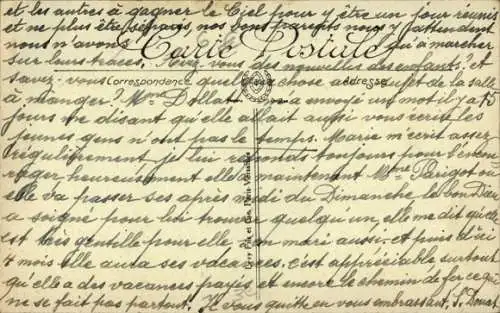 et les autres à gagner le Ciel pour y être un jour réunis
et ne plus être séparés, nos bons parents nous y attendent
nous n'avons qu'à marcher
Carte Postale
sur leurs traces. Avez-vous des nouvelles des enfants? et
savez-vous quelque chose au sujet de la salle
Correspondance
Adresse
à manger? Mme Dollat m'a envoyé un mot il y a 15
jours me disant qu'elle allait aussi vous écrire les
jeunes gens n'ont pas le temps. Marie m'écrit assez
régulièrement je lui réponds toujours pour l'encou
rager, heureusement elle a maintenant Mme Parigot où
elle va passer ses après midi du Dimanche le bon Dieu
a soigné pour lui trouver quelqu'un, elle me dit qu'elle
est très gentille pour elle, son mari aussi. et puis d'ici
4 mois elle aura ses vacances. c'est appréciable surtout
qu'elle a des vacances payés et encore le chemin de fer ce qui
ne se fait pas partout. Je vous quitte en vous embrassant. S. Douat